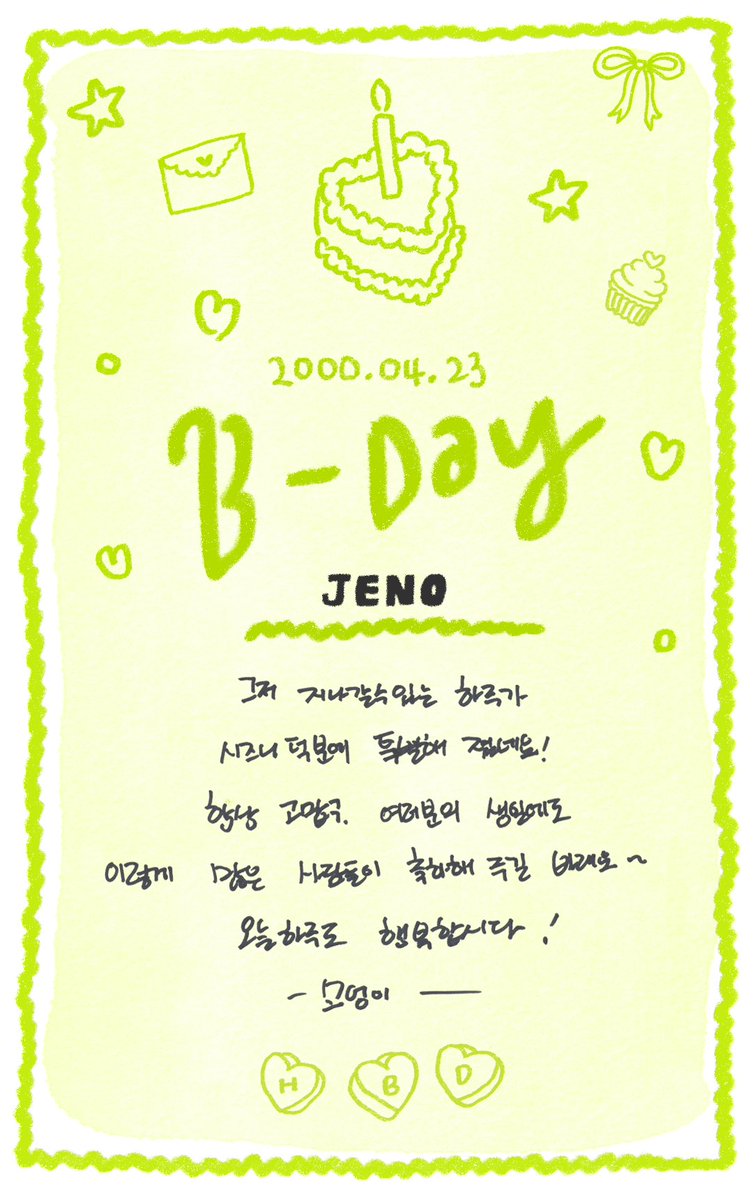 2000.04.23
B-Day
JENO
그저 지나갈수있는 하루가
시즈니 덕분에 특별해 졌네요!
항상 고맙구. 여러분의 생일에도
이렇게 많은 사람들이 축하해 주길 바래요~
오늘하루도 행복합시다!
- 모엉이 —
H B D